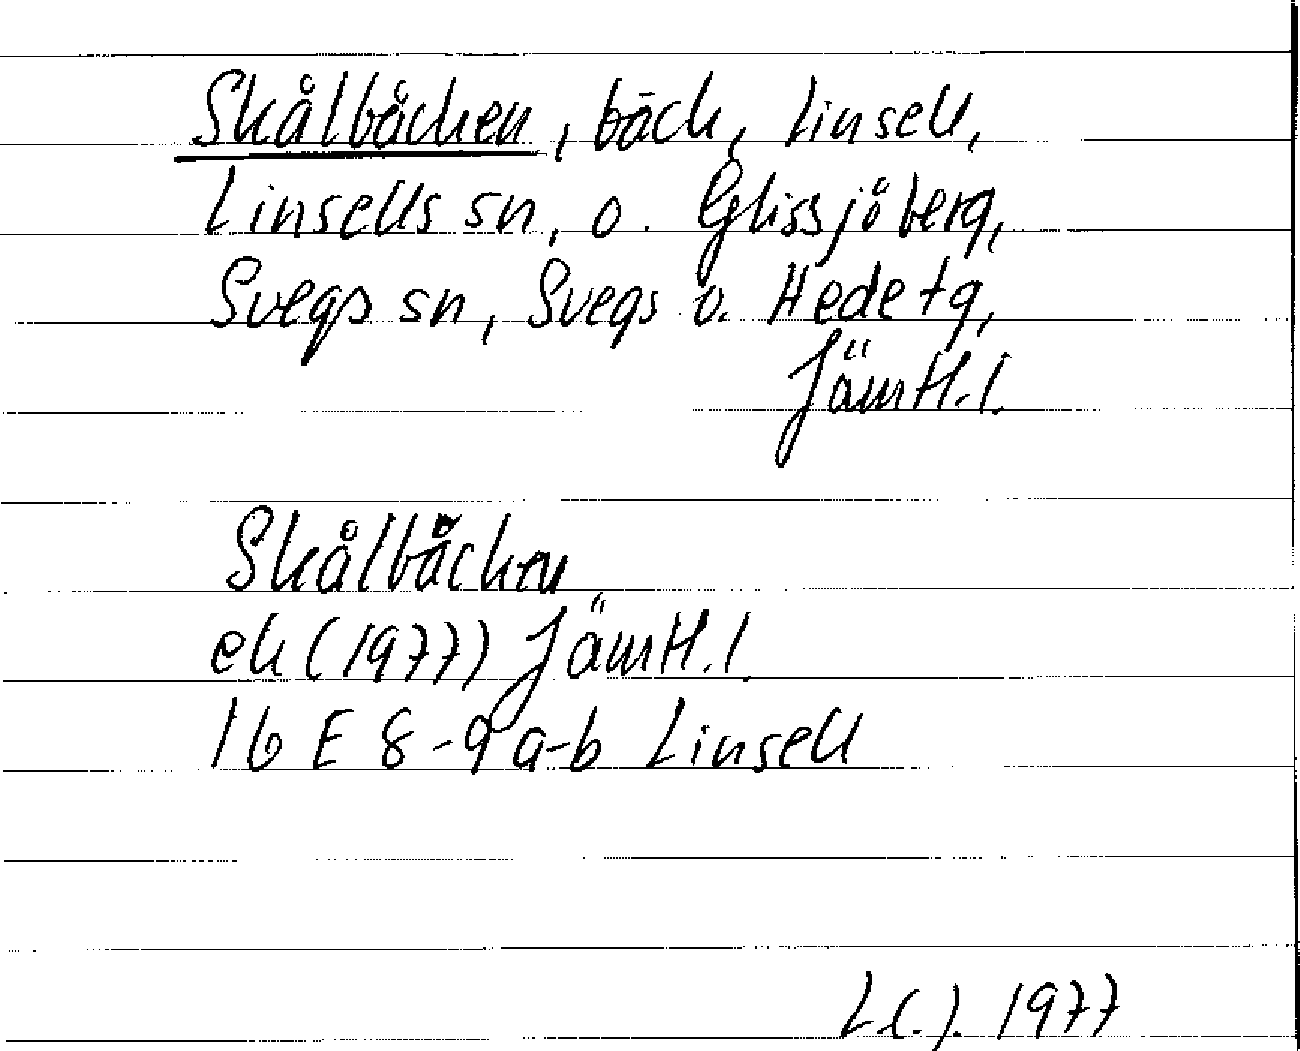 Skålbäcken, bäck, Linsell,
Linsells sn, o. Glissjöberg,
Svegs sn, Svegs o. Hede tg,
Jämtl. l.
Skålbäcken
ek (1977) Jämtl. l.
16 E 8-9 a-b Linsell
1977